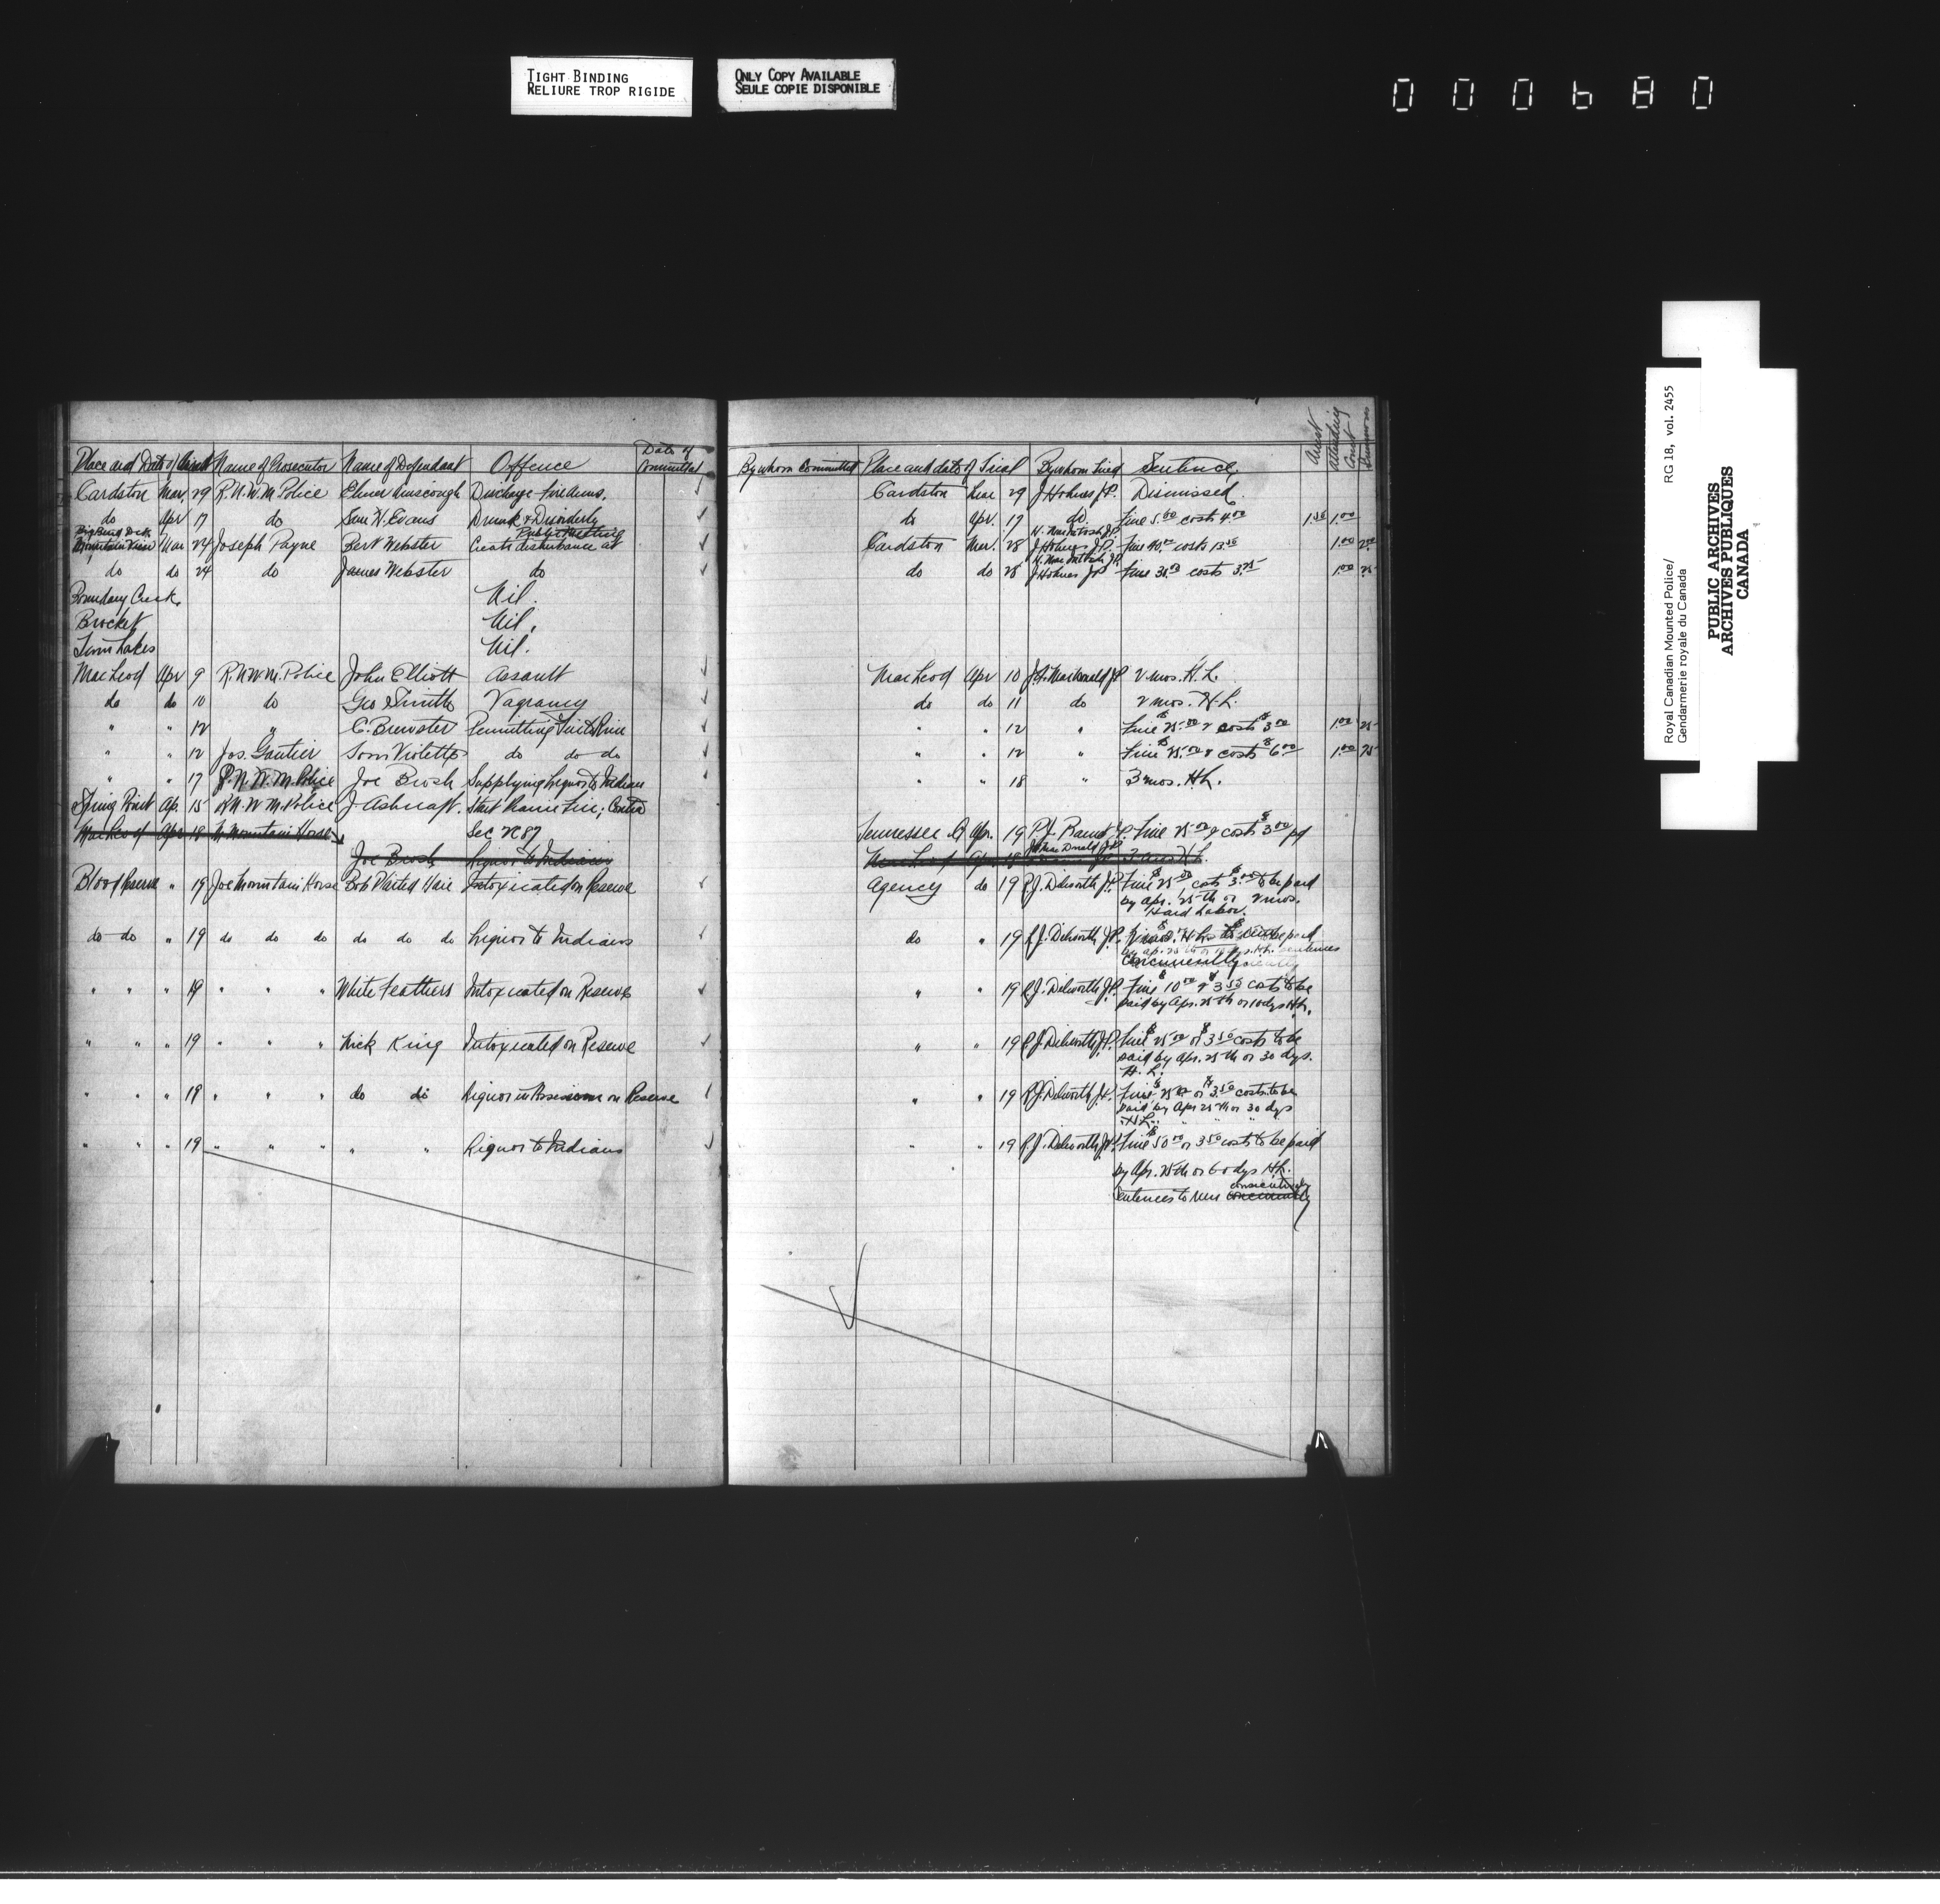 TIGHT BINDING
RELIURE TROP RIGIDE
ONLY COPY AVAILABLE
SEULE COPIE DISPONIBLE
000680
Royal Canadian Mounted Police/ RG 18, vol. 2455
Gendarmerie royale du Canada
PUBLIC ARCHIVES
ARCHIVES PUBLIQUES
CANADA
Place and Date of Arrest Name of Prosecutor Name of Defendant Offence Date of Committal By whom Committed Place and date of Trial By whom Tried Sentence Arrest Attending Court Summons
Cardston Mar. 29 R.N.W.M. Police Elmer Ainscough Discharge firearms. Cardston Mar 29 J Holmes J.P. Dismissed.
do Apr 17 do Sam H. Evans Drunk & Disorderly do Apr. 17 do. Fine 5.00 costs 4.00 1.50 1.00
Mountain View Mar 24 Joseph Payne Bert Webster Create disturbance at Public Meeting Cardston Mar. 28 J Holmes J.P. Fine 40.00 costs 13.50 1.00
do do 24 do James Webster do do do 28 J Holmes JP Fine costs 3.75 1.00
Boundary Creek Nil.
Brocket Nil.
Twin Lakes Nil.
MacLeod Apr 9 R.N.W.M. Police John Elliott Assault MacLeod Apr 10 MacDonald JP 2 mos. H.L.
do do 10 do Geo Smith Vagrancy do do 11 do 2 mos. H.L.
" " 12 " C. Brewster " " 12 " Fine 25.00 & costs $3.00 1.00 25
" " 12 Jos. Gautier Violette do do do " " 12 " Fine 25.00 & costs 6.00 1.00 75
" " 17 R.N.W.M. Police Joe Brosh Supplying Liquor to Indian " " 18 " 3 mos. H.L.
Spring Point Ap. 15 R.N.W.M. Police J Ashcraft. Start Prairie Fire; Contra
Sec 2C87 Tennessee C Apr. 19 Fine 25.00 & costs $3.00 pd
MacLeod Apr 18 Mountain Horse
Joe Brosh Liquor to Indians MacLeod Apr 18 MacDonald JP 3 mos H.L.
Blood Reserve " 19 Joe Mountain Horse Bob Plaited Hair Intoxicated on Reserve Agency do 19 R.J. Dilworth J.P. Fine $25.00 costs to be paid
by Apr. 25th or 2 mos.
Hard Labor.
do do " 19 do do do do do do Liquor to Indians do " 19 R.J. Dilworth J.P.
" " " 19 " " " White Feathers Intoxicated on Reserve " " 19 R.J. Dilworth J.P. Fine $10.00 & 3.50 costs to be
paid by Apr. 25th or 10 dys H.L.
" " " 19 " " " Nick King Intoxicated on Reserve " " 19 R.J. Dilworth J.P. Fine $25.00 or $3.50 costs to be
paid by Apr. 25th or 30 dys.
H.L.
" " " 19 " " " do do Liquor in Possession on Reserve " " 19 R.J. Dilworth J.P. Fine $25.00 or 3.50 costs to be
paid by Apr 25th or 30 dys
H.L.
" " " 19 " " " " " Liquor to Indians " " 19 R.J. Dilworth J.P. Fine $50.00 or 3.50 costs to be paid
by Apr. 25th or 60 dys H.L.
Sentences to run concurrently consecutively